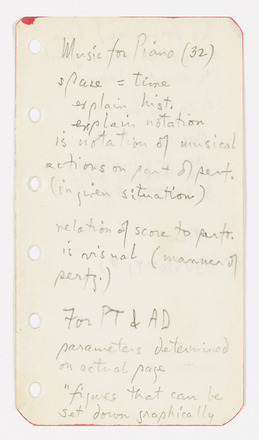 Music for Piano (32)
space = time
explain hist.
explain notation
is notation of musical
actions on part of perf.
(in given situation)
relation of score to perf.
is visual (manner of
perf.)
For PT & AD
parameters determined
on actual page
"figures that can be
set down graphically